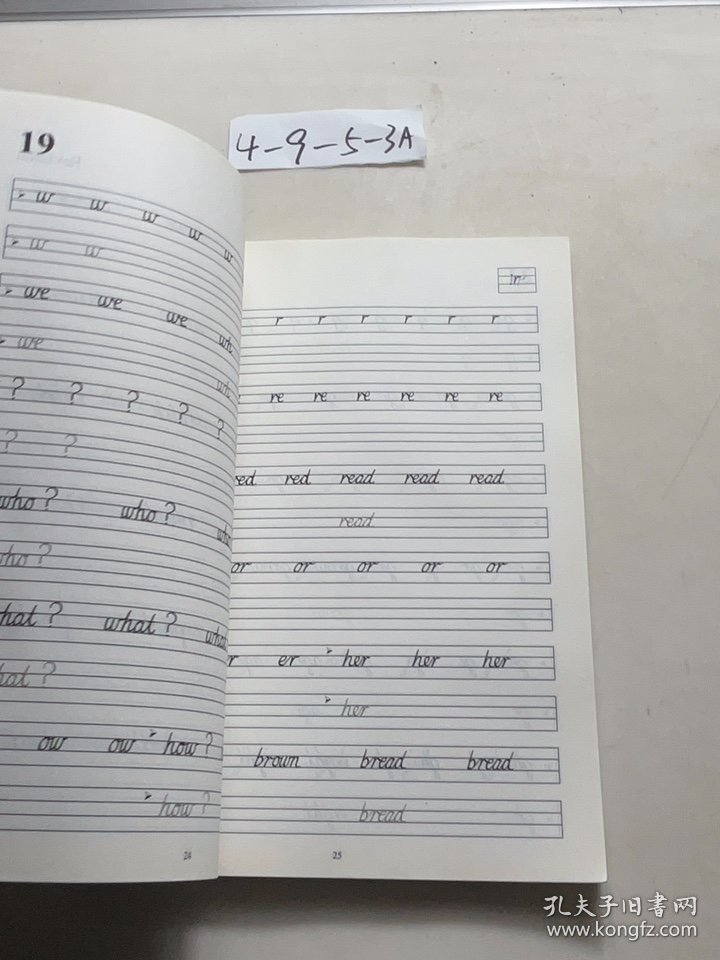 4-9-5-3A
19
w w w w w
w w
we we we wh
we wh
? ? ? ? ?
? ?
who? who?
who?
what? what? what
what?
ow ow how?
how?
24
in
r r r r r r
re re re re re re
red red read read read
read
or or or or or
er her her her
her
brown bread bread
bread
25
孔夫子旧书网
www.kongfz.com